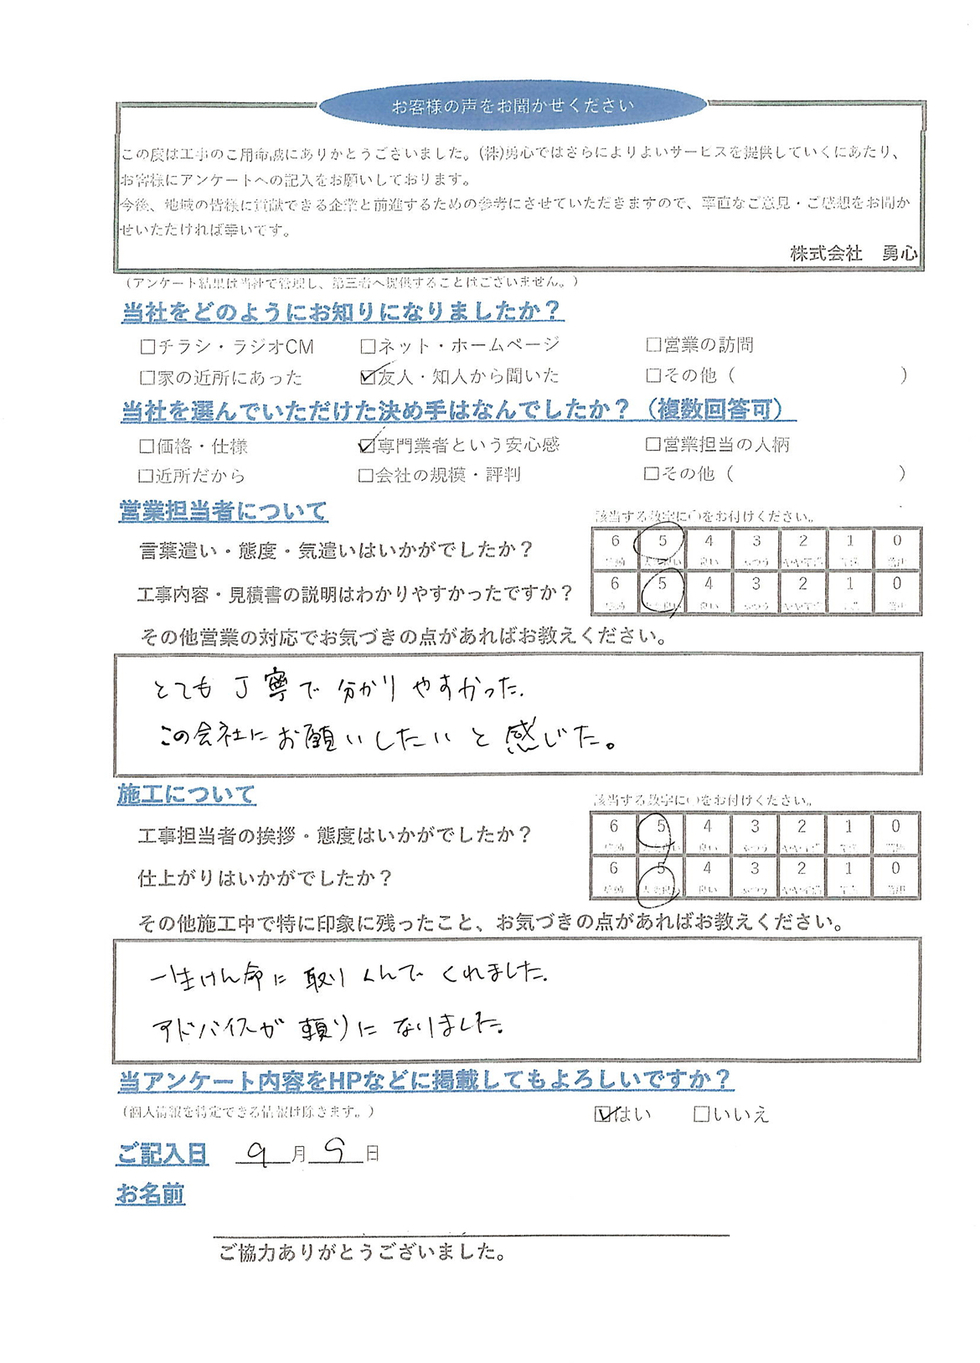 お客様の声をお聞かせください
この度は工事のご用命誠にありがとうございました。(株)勇心ではさらによりよいサービスを提供していくにあたり、
お客様にアンケートへの記入をお願いしております。
今後、地域の皆様に貢献できる企業と前進するための参考にさせていただきますので、率直なご意見・ご感想をお聞か
せいただければ幸いです。
株式会社 勇心
(アンケート結果は当社で管理し、第三者へ提供することはございません。)
当社をどのようにお知りになりましたか？
□チラシ・ラジオCM □ネット・ホームページ □営業の訪問
□家の近所にあった ☑友人・知人から聞いた □その他（ ）
当社を選んでいただけた決め手はなんでしたか？（複数回答可）
□価格・仕様 ☑専門業者という安心感 □営業担当の人柄
□近所だから □会社の規模・評判 □その他（ ）
営業担当者について
該当する数字に○をお付けください。
言葉遣い・態度・気遣いはいかがでしたか？ 6 5 4 3 2 1 0
良い ふつう
工事内容・見積書の説明はわかりやすかったですか？ 6 5 4 3 2 1 0
良い ふつう
その他営業の対応でお気づきの点があればお教えください。
とても丁寧で分かりやすかった.
この会社にお願いしたいと感じた。
施工について
該当する数字に○をお付けください。
工事担当者の挨拶・態度はいかがでしたか？ 6 5 4 3 2 1 0
良い ふつう
仕上がりはいかがでしたか？ 6 5 4 3 2 1 0
良い ふつう
その他施工中で特に印象に残ったこと、お気づきの点があればお教えください。
一生けん命に取りくんでくれました.
アドバイスが頼りになりました。
当アンケート内容をHPなどに掲載してもよろしいですか？
(個人情報を特定できる情報は除きます。) ☑はい □いいえ
ご記入日 9月9日
お名前
ご協力ありがとうございました。